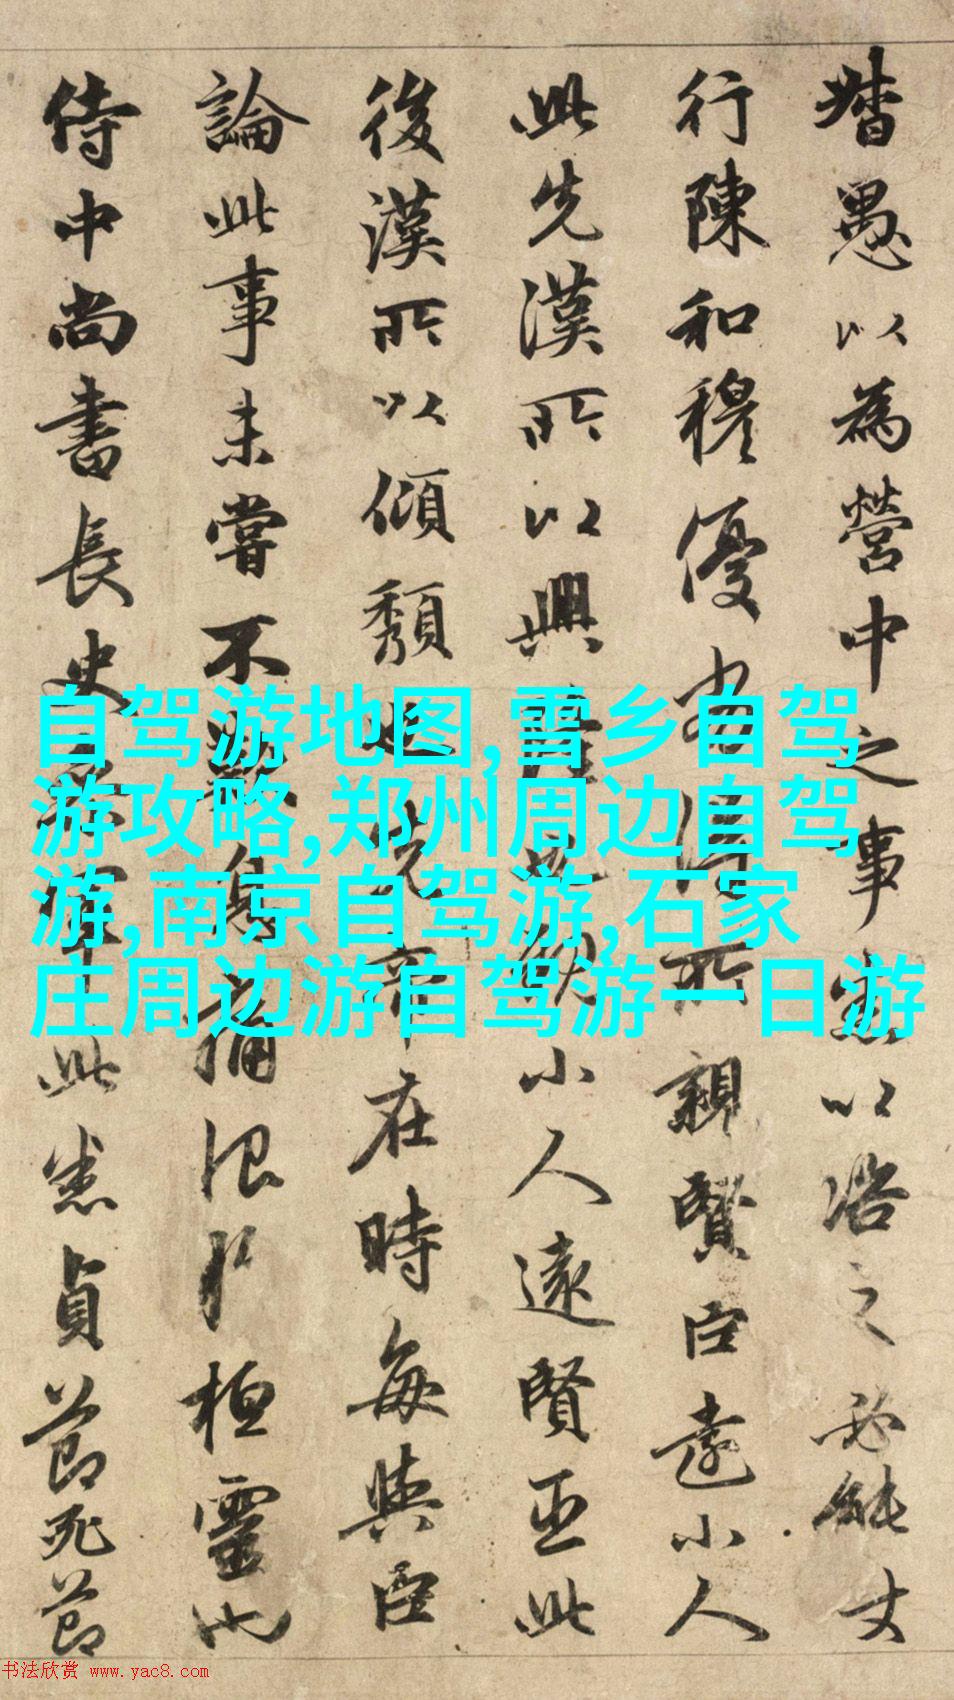 督愚以為營中之事悉以洽之必能
行陳和穆優劣得所親賢臣遠小人
此先漢所以興隆也親小人遠賢臣此
後漢所以傾頹也先帝在時每與臣
論此事未嘗不歎息痛恨於桓靈也
侍中尚書長史參軍此悉貞節死節
自驾游地图,雪乡自驾
游攻略,郑州周边自驾
游,南京自驾游,石家
庄周边游自驾游一日游
书法欣赏 www.yac8.com